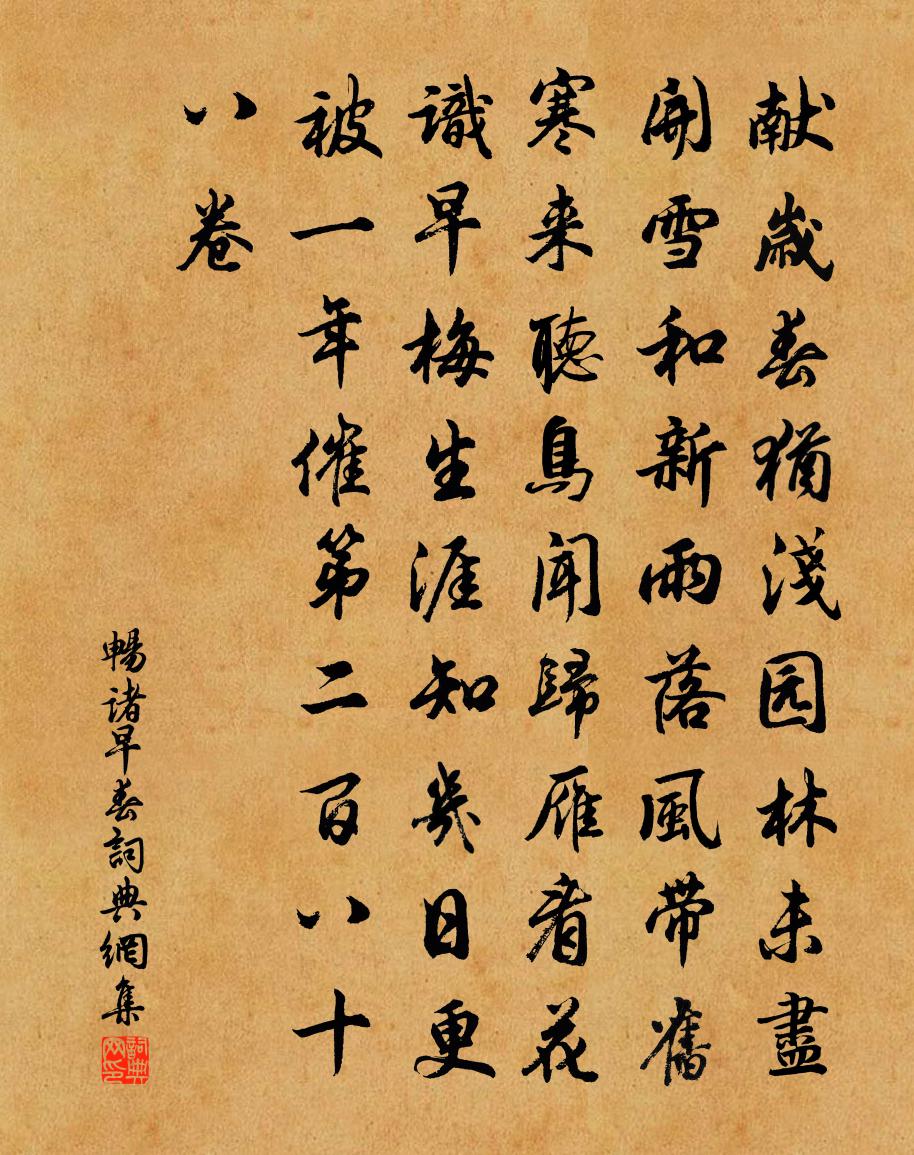 献歳春猶淺园林未盡
開雪和新雨落風帶舊
寒来聽鳥聞歸雁看花
識早梅生涯知幾日更
被一年催第二百八十
八卷
暢诸早春詞典網集
詞典网印